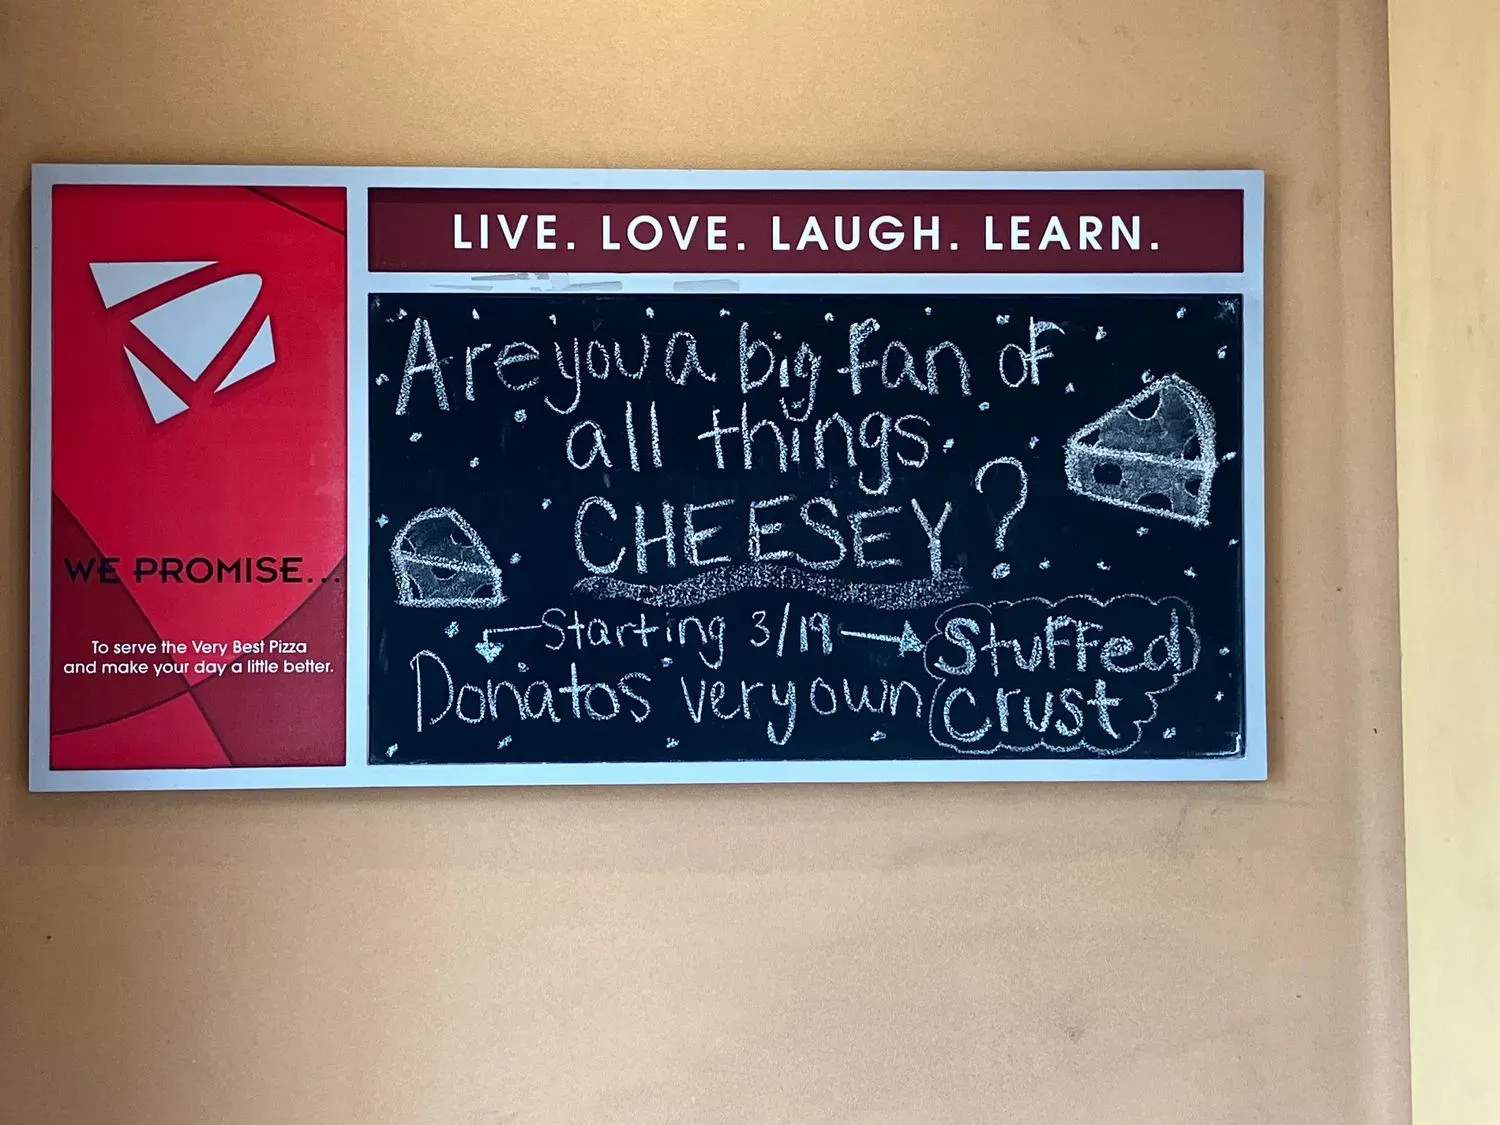 LIVE. LOVE. LAUGH. LEARN.
Are you a big fan of
all things
CHEESEY?
Starting 3/19
Donatos very own
Stuffed
Crust
WE PROMISE...
To serve the Very Best Pizza
and make your day a little better.